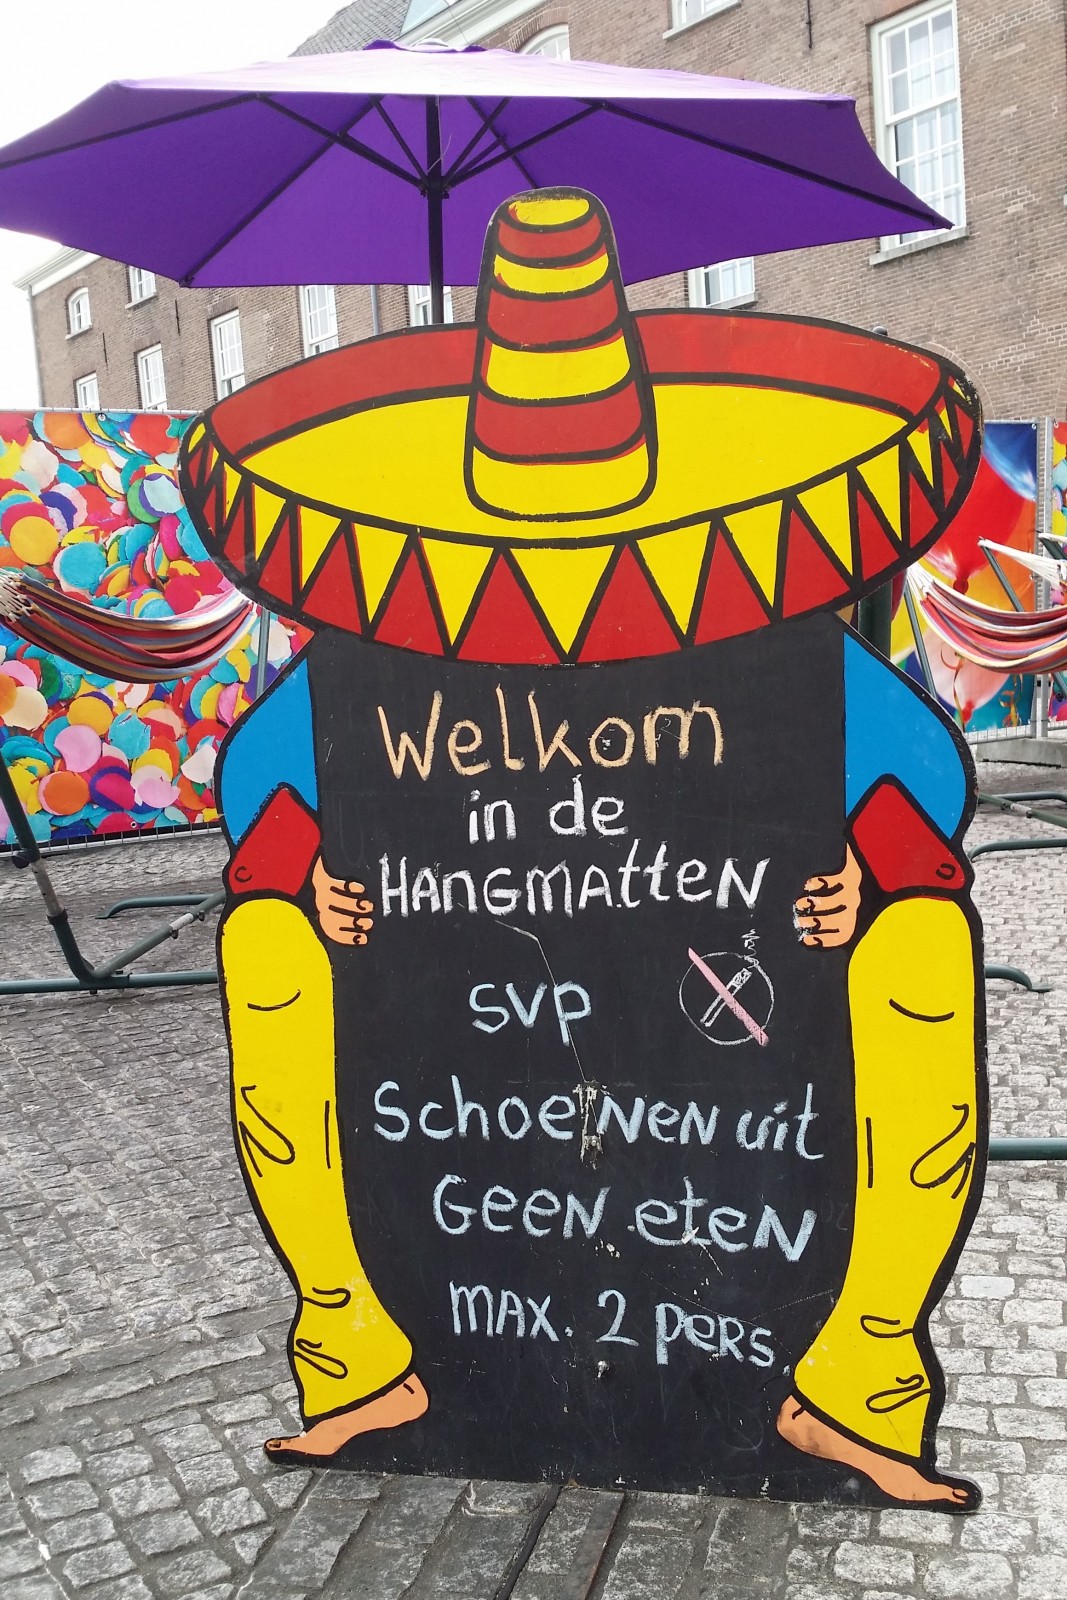 Welkom
in de
HANGMATTEN
SVP
SCHOENEN uit
GEEN eteN
MAX. 2 PERS.